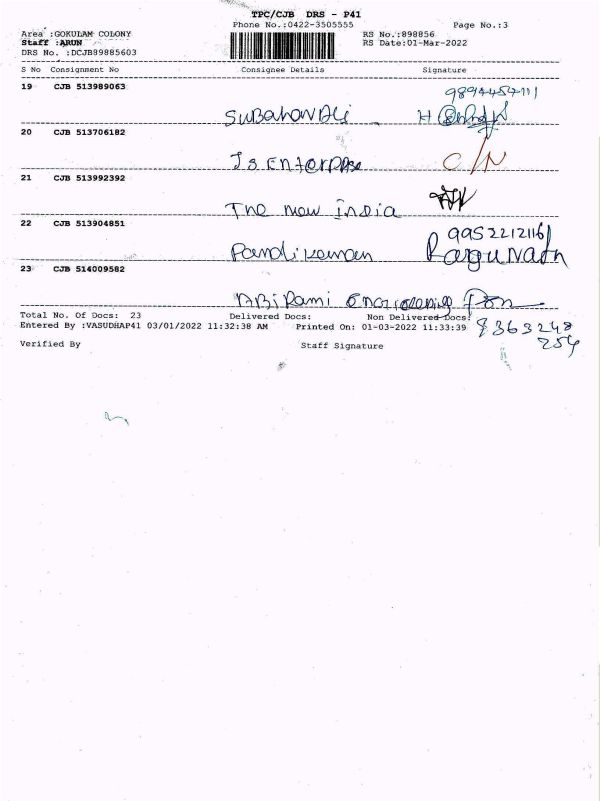 TPC/CJB DRS - P41
Phone No.:0422-3505555
Page No.:3
Area :GOKULAM COLONY
RS No.:898856
Staff :ARUN
RS Date:01-Mar-2022
DRS No. :DCJB89885603
S No Consignment No Consignee Details Signature
19 CJB 513989063
9894454711
SUBahan Ali H
20 CJB 513706182
Js Enterprise C/N
21 CJB 513992392
The new india
22 CJB 513904851
9952212116
Pandikannan Ragunath
23 CJB 514009582
ABiRami Engineering
Total No. Of Docs: 23 Delivered Docs: Non Delivered Docs:
Entered By :VASUDHAP41 03/01/2022 11:32:38 AM Printed On: 01-03-2022 11:33:39
9363248
254
Verified By Staff Signature